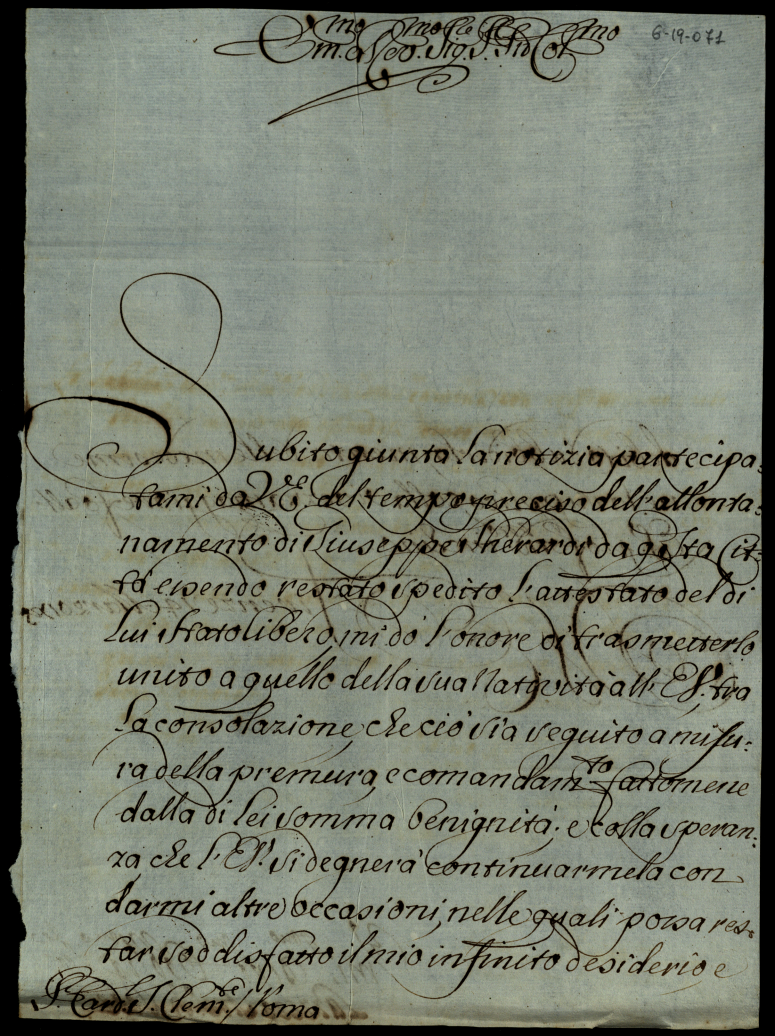 G-19-071
Em.mo e Rev.mo Sig.re P.ne Col.mo
Subito giunta la notizia partecipa:
tami da V.E. del tempo preciso dell'allonta:
namento di Giuseppe Gherardi da q'sta Cit:
tà essendo restato spedito l'attestato del di
lui stato libero, mi dò l'onore di trasmetterlo
unito a quello della sua Natività all'E.V. frà
la consolazione, che ciò sia seguito a misu:
ra della premura, e comandam.to fattomene
dalla di lei somma benignità; e colla speran:
za che l'E.V. si degnerà continuarmela con
darmi altre occasioni, nelle quali possa res:
tar soddisfatto il mio infinito desiderio e
S. Card. S. Clem.te / Roma